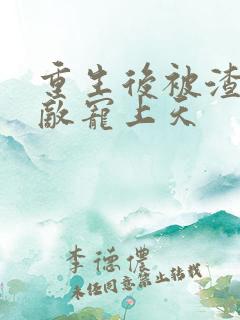 重生後被渣
敵寵上天
李德儂
未经同意禁止转载